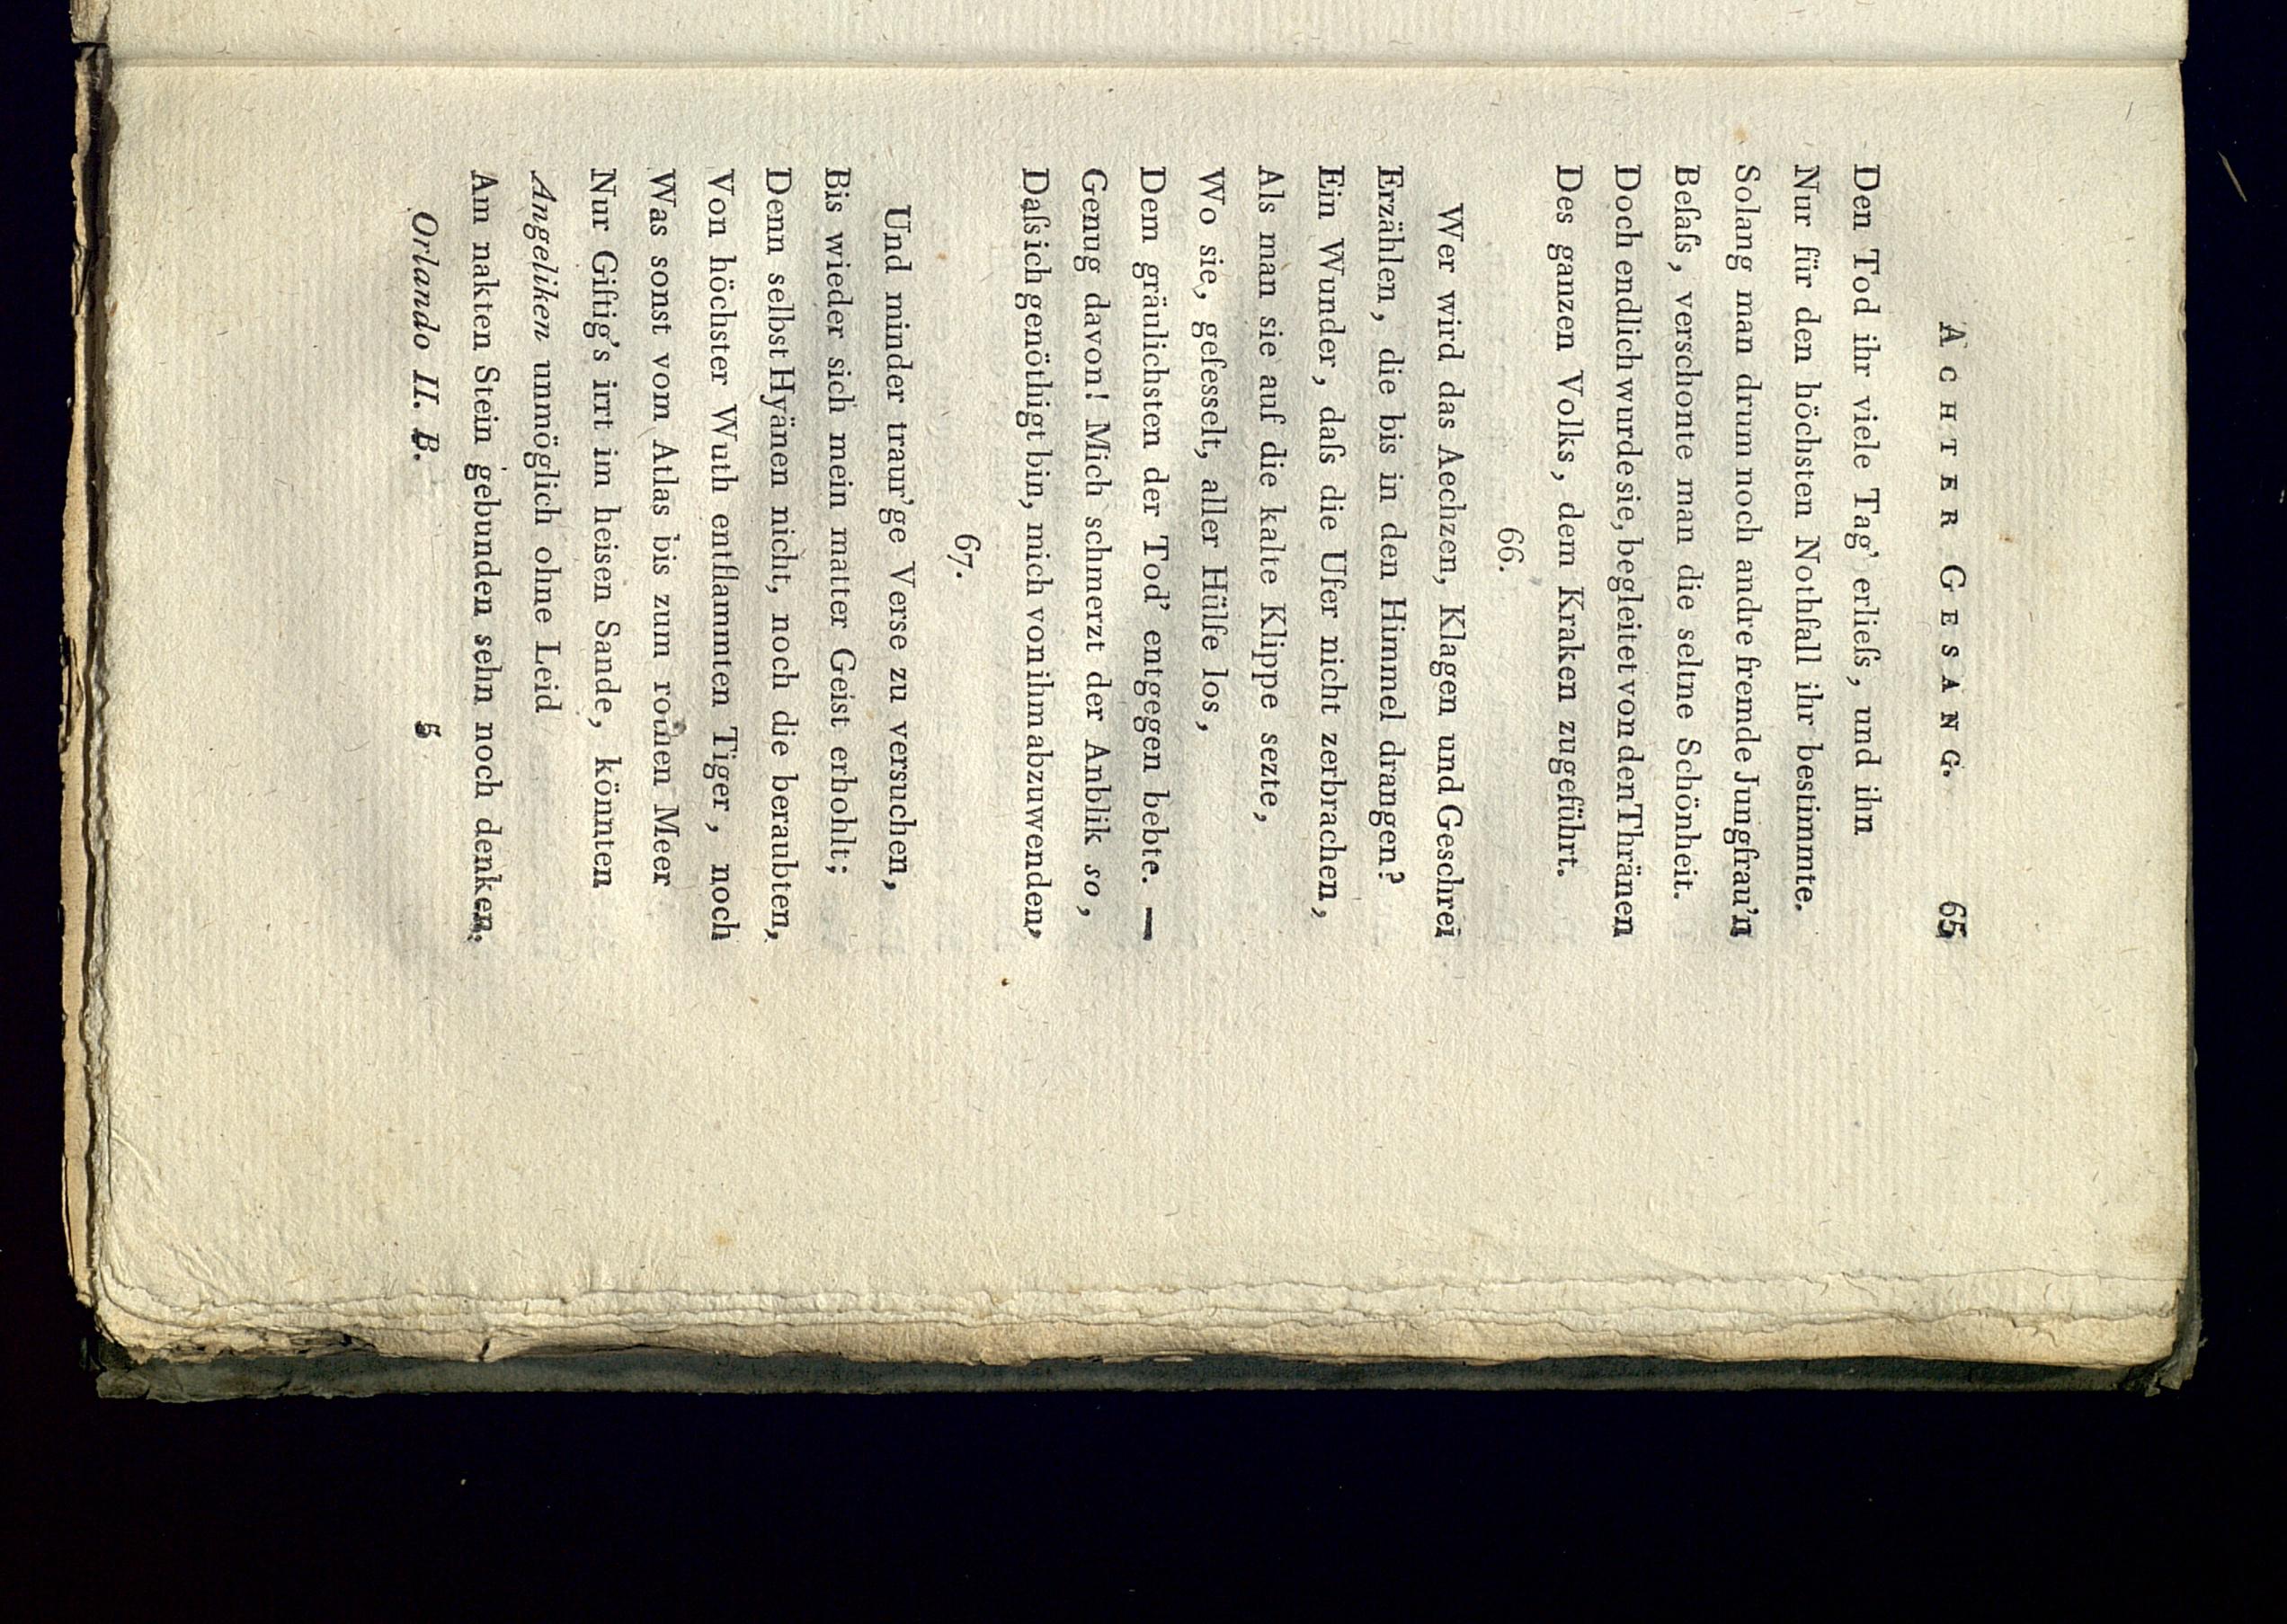 ACHTER GESANG. 65
Den Tod ihr viele Tag' erlieſs, und ihn
Nur für den höchsten Nothfall ihr bestimmte.
Solang man drum noch andre fremde Jungfrau'n
Beſaſs, verschonte man die seltne Schönheit.
Doch endlich wurde sie, begleitet von den Thränen
Des ganzen Volks, dem Kraken zugeführt.
66.
Wer wird das Aechzen, Klagen und Geschrei
Erzählen, die bis in den Himmel drangen?
Ein Wunder, daſs die Ufer nicht zerbrachen,
Als man sie auf die kalte Klippe sezte,
Wo sie, gefesselt, aller Hülfe los,
Dem gräulichsten der Tod' entgegen bebte. —
Genug davon! Mich schmerzt der Anblik so,
Daſs ich genöthigt bin, mich von ihm abzuwenden,
67.
Und minder traur'ge Verse zu versuchen,
Bis wieder sich mein matter Geist erhohlt;
Denn selbst Hyänen nicht, noch die beraubten,
Von höchster Wuth entflammten Tiger, noch
Was sonst vom Atlas bis zum rothen Meer
Nur Giftig's irrt im heisen Sande, könnten
Angeliken unmöglich ohne Leid
Am nakten Stein gebunden sehn noch denken.
Orlando II. B. 5